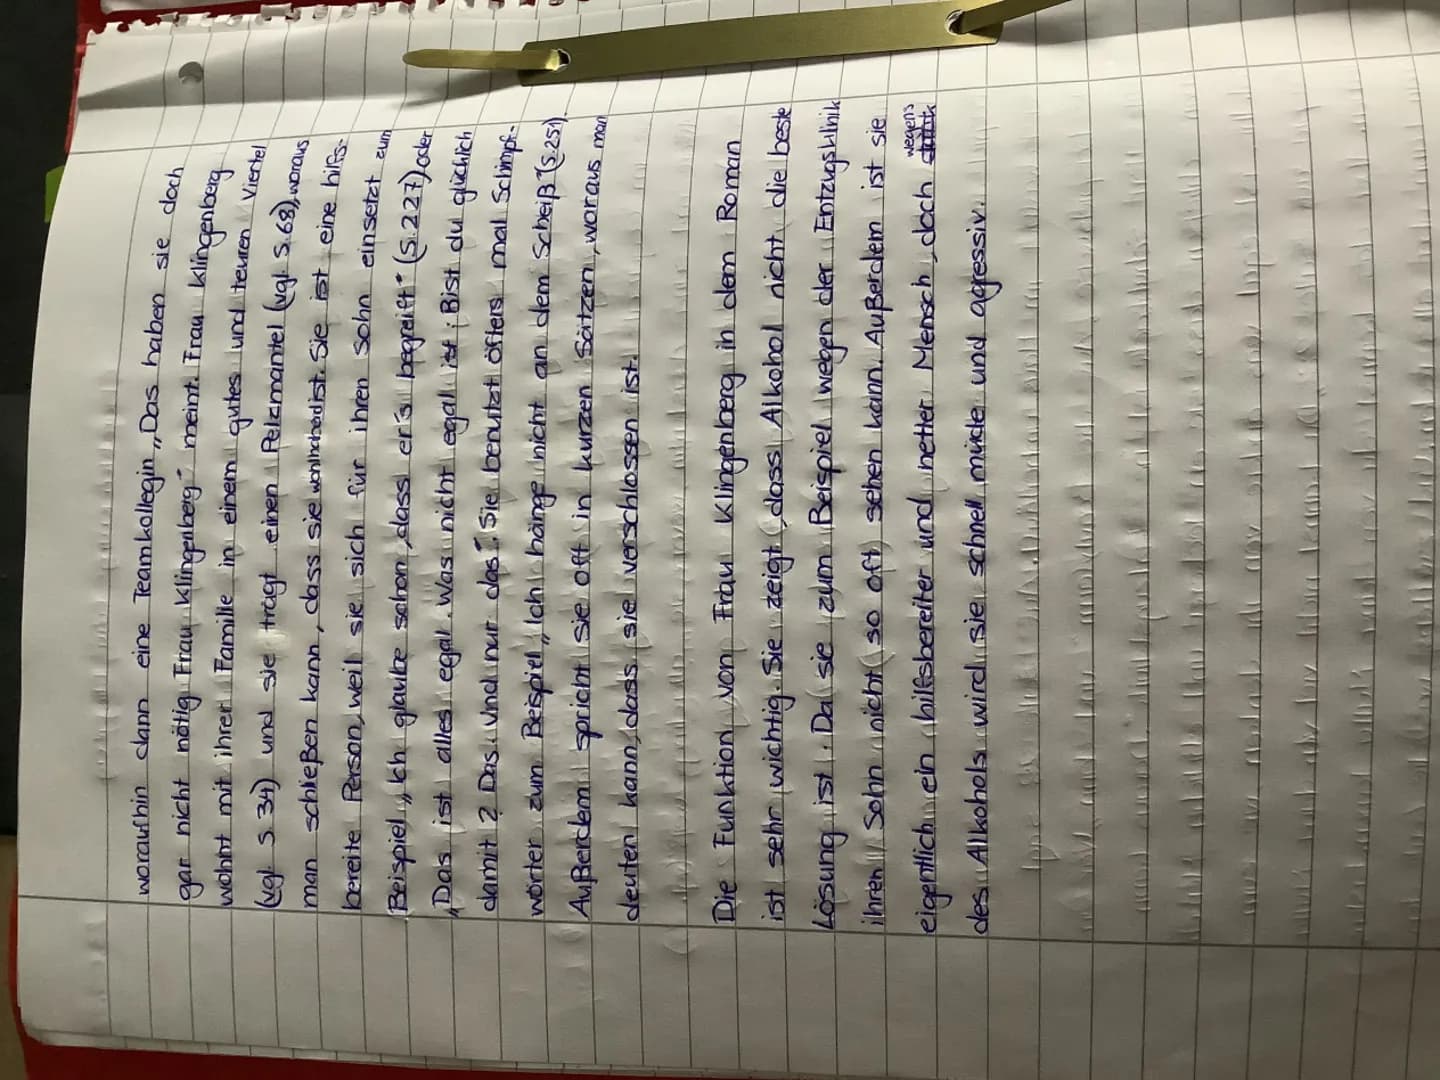 woraufhin dann eine Teamkollegin „Das haben sie doch
gar nicht nötig Frau Klingenberg" meint. Frau Klingenberg
wohnt mit ihrer Familie in einem gutes und teuren Viertel
(vgl. S. 34) und sie trägt einen Pelzmantel (vgl. S.68), woraus
man schließen kann, dass sie wohlhabend ist. Sie ist eine hilfs-
bereite Person, weil sie sich für ihren Sohn einsetzt zum
Beispiel „Ich glaube schon, dass er's begreift" (S.227), oder
„Das ist alles egal. Was nicht egal ist: Bist du glücklich
damit? Das. Und nur das". Sie benutzt öfters mal Schimpf-
wörter zum Beispiel „Ich hänge nicht an dem Scheiß" (S.251).
Außerdem spricht sie oft in kurzen Sätzen, woraus man
deuten kann, dass sie verschlossen ist.
Die Funktion von Frau Klingenberg in dem Roman
ist sehr wichtig. Sie zeigt, dass Alkohol nicht die beste
Lösung ist. Da sie zum Beispiel wegen der Entzugsklinik
ihren Sohn nicht so oft sehen kann. Außerdem ist sie
eigentlich ein hilfsbereiter und netter Mensch, doch wegens
des Alkohols wird sie schnell müde und agressiv.